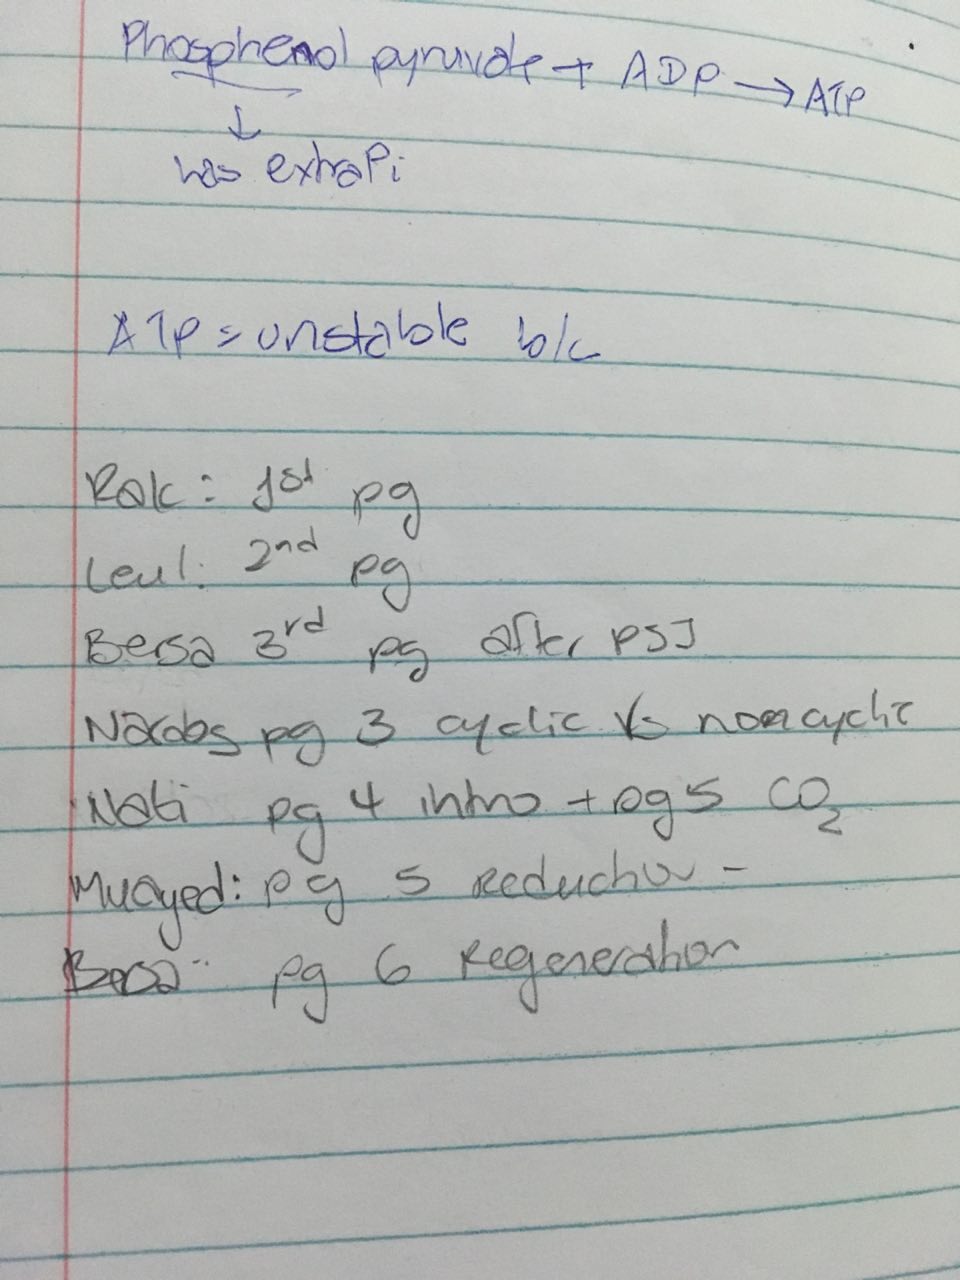 Phosphenol pyruvate + ADP → ATP
↓
has extra Pi
ATP = unstable b/c
Rak: 1st pg
Leul: 2nd pg
Bersa 3rd pg after PSI
pg 3 cyclic Vs noncyclic
Nati pg 4 intro + pg 5 CO2
Muayed: pg 5 Reduction -
Bersa: pg 6 Regeneration